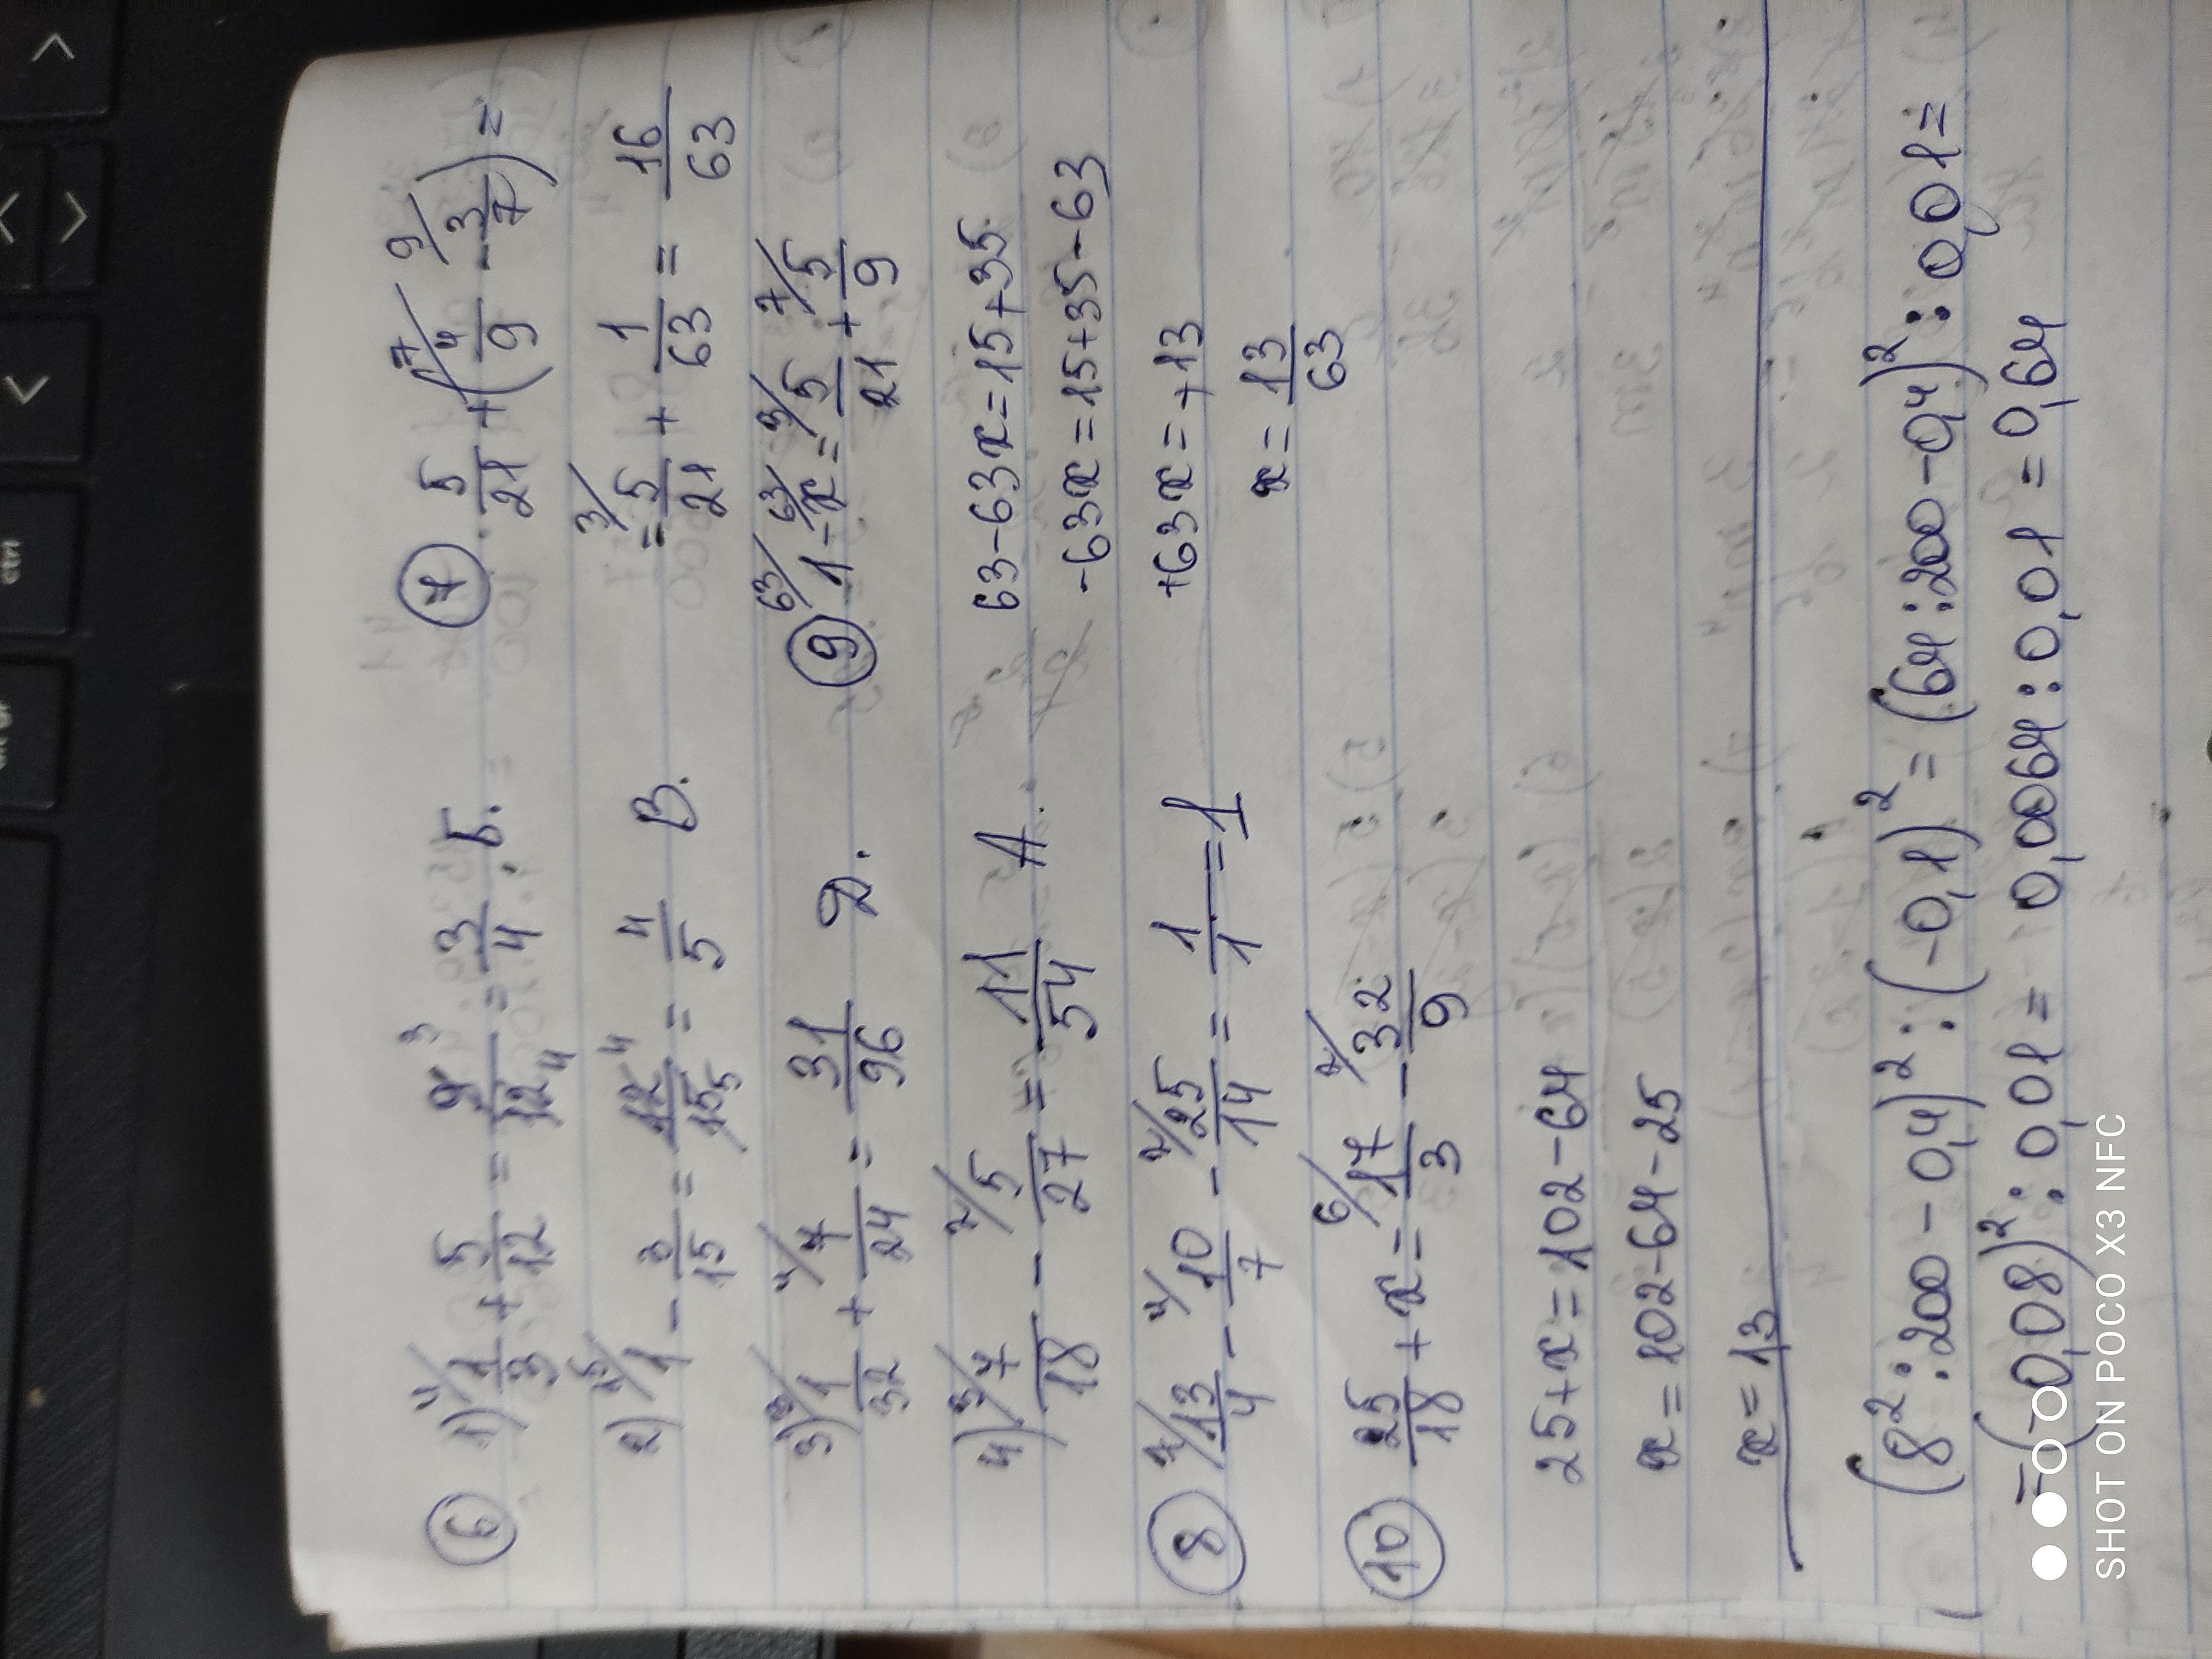 6 1) 4/ 1/3 + 5/12 = 9/12 3 4 = 3/4 Б.
2) 15/ 1 - 3/15 = 12/15 4 5 = 4/5 В.
3) 3/ 1/32 + 4/ 7/24 = 31/96 Д.
4) 3/ 7/18 - 2/ 5/27 = 11/54 А.
7 5/21 + (7/ 4/9 - 9/ 3/7) =
= 3/ 5/21 + 1/63 = 16/63
8 7/ 13/4 - 4/ 10/7 - 2/ 25/14 = 1/1 = 1
9 63/ 1 - 63/ x = 3/ 5/21 + 7/ 5/9
63 - 63x = 15 + 35
-63x = 15 + 35 - 63
+63x = +13
x = 13/63
10 25/18 + x = 6/ 17/3 - 2/ 32/9
25 + x = 102 - 64
x = 102 - 64 - 25
x = 13
(8² : 200 - 0,4)² : (-0,1)² = (64 : 200 - 0,4)² : 0,01 =
= (-0,08)² : 0,01 = 0,0064 : 0,01 = 0,64
SHOT ON POCO X3 NFC
ctrl